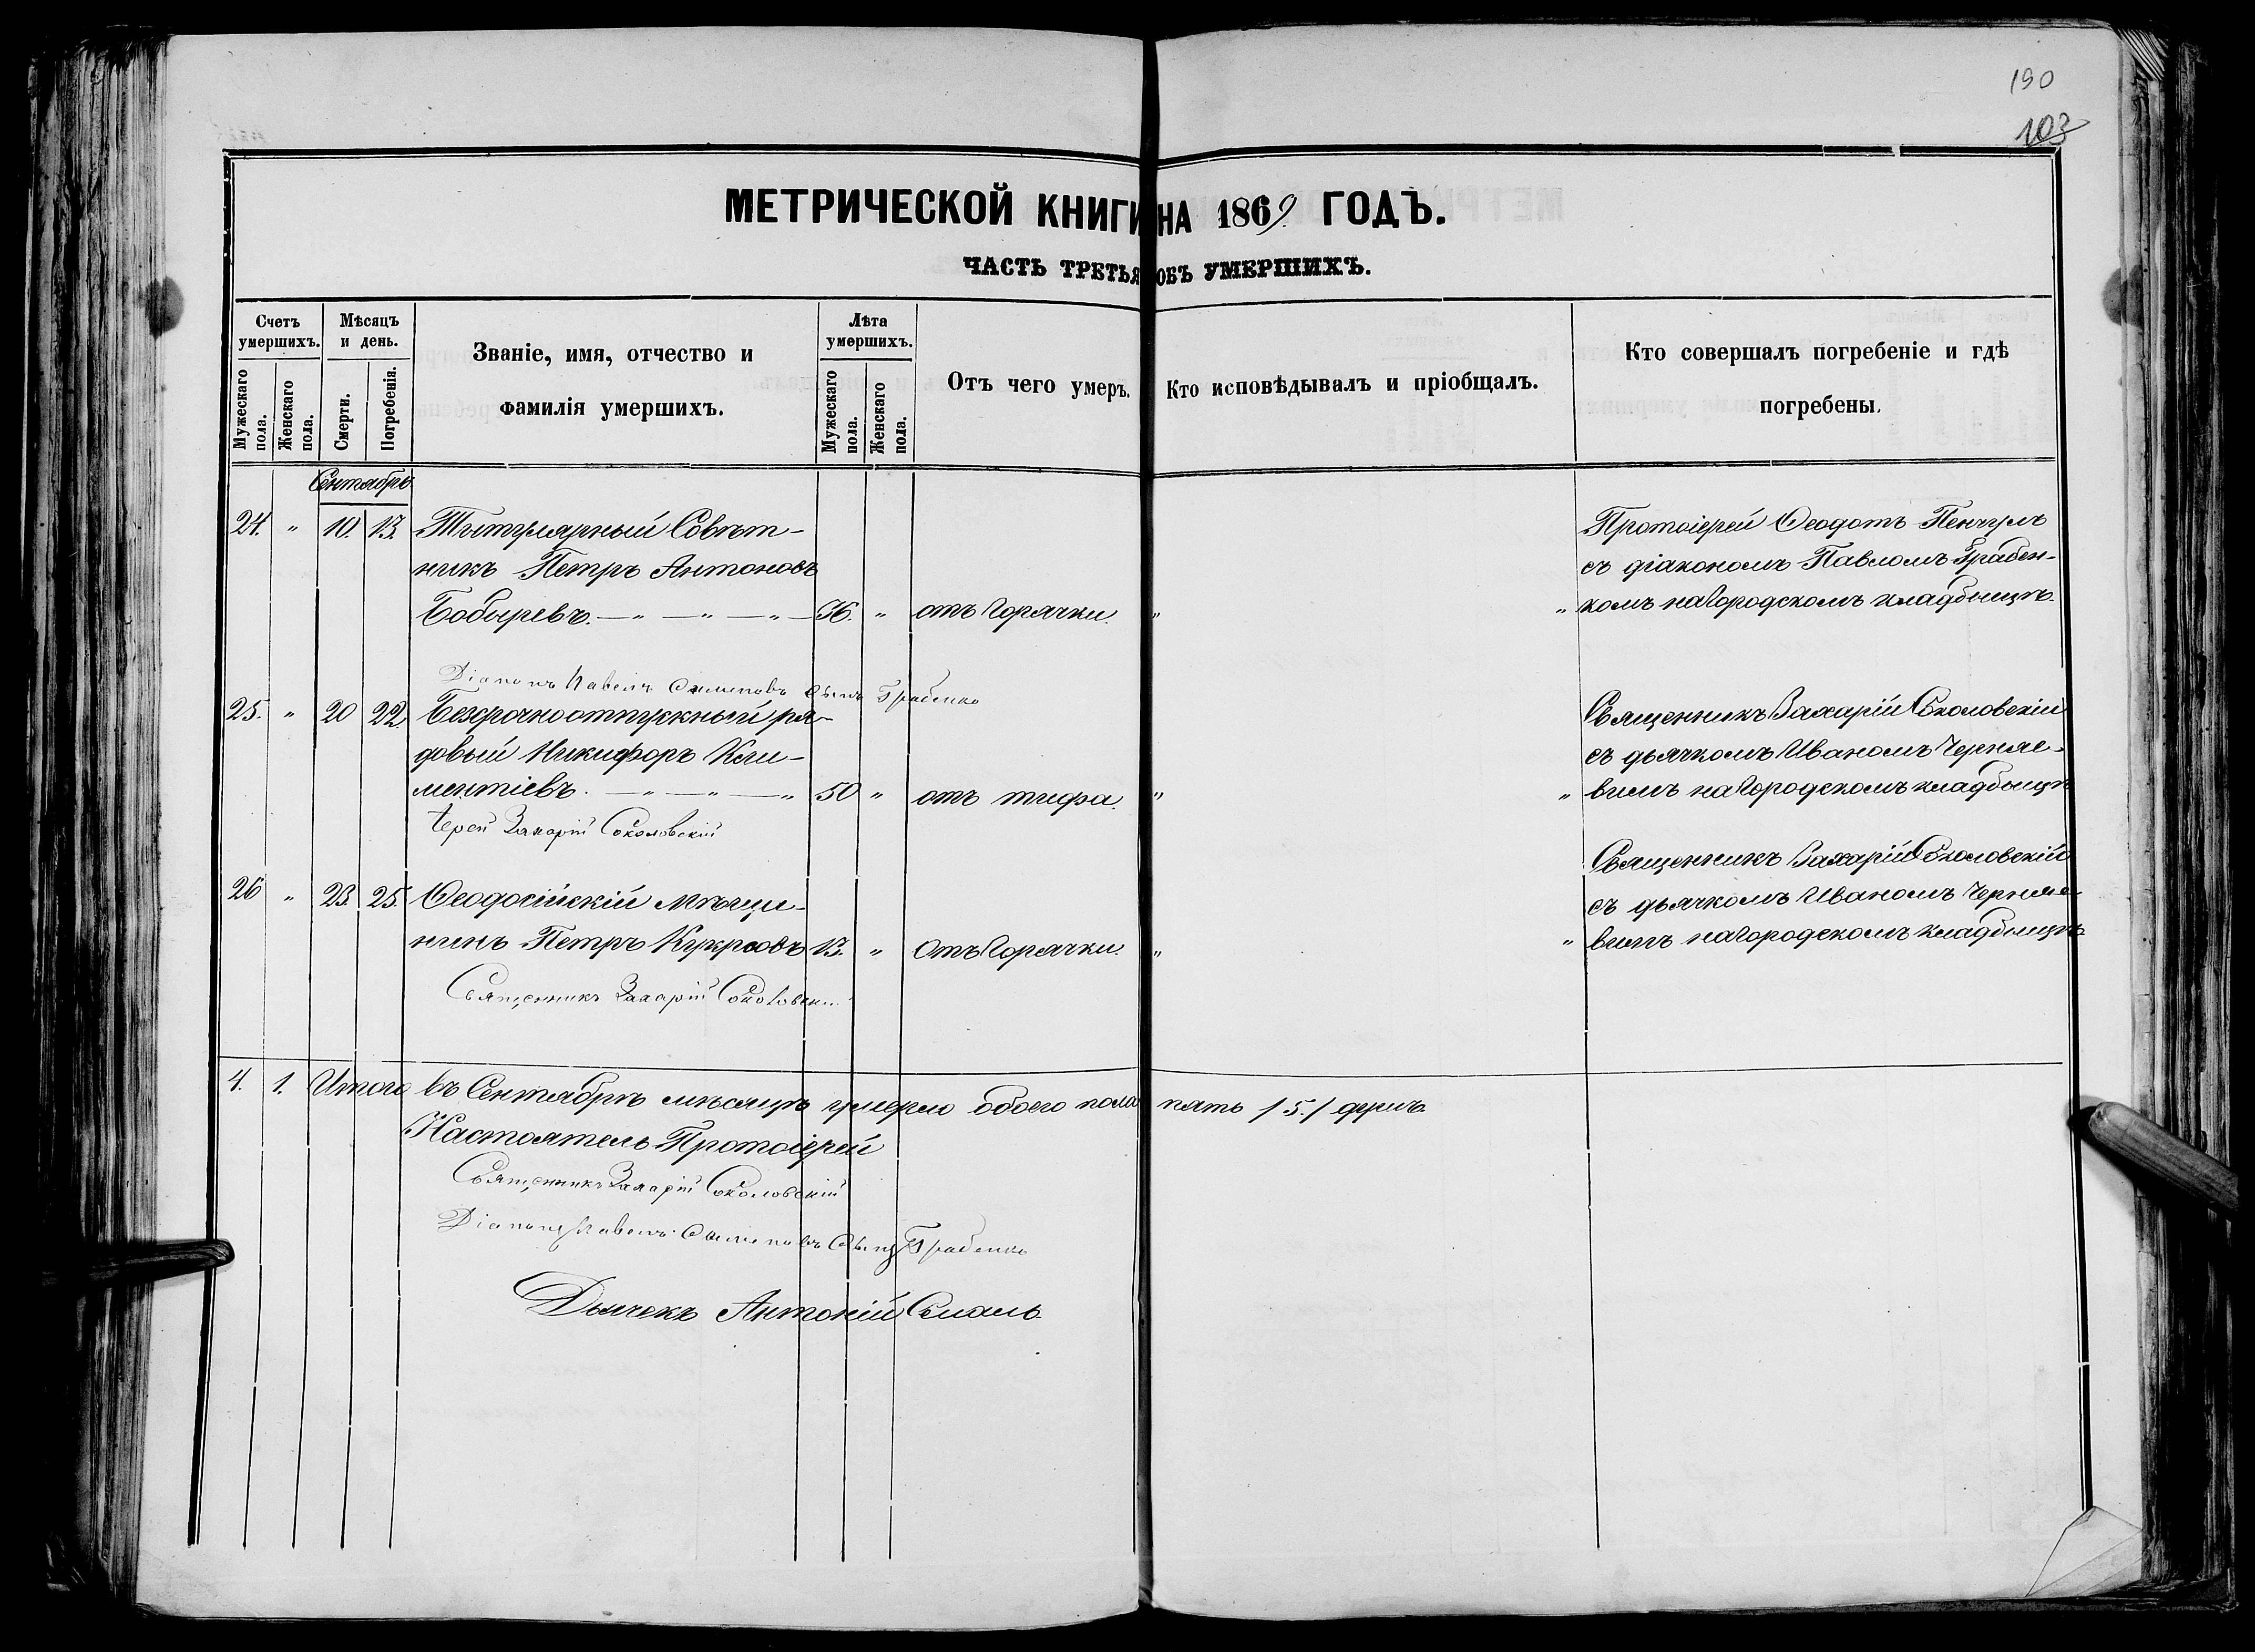 190
103
МЕТРИЧЕСКОЙ КНИГИ НА 1869. ГОДЪ.
ЧАСТЬ ТРЕТЬЯ ОБЪ УМЕРШИХЪ.
Счетъ умершихъ.
Мужескаго пола.
Женскаго пола.
Мѣсяцъ и день.
Смерти.
Погребенія.
Званіе, имя, отчество и
фамилія умершихъ.
Лѣта умершихъ.
Мужескаго пола.
Женскаго пола.
Отъ чего умеръ.
Кто исповѣдывалъ и пріобщалъ.
Кто совершалъ погребеніе и гдѣ
погребены.
Сентябрь
24. " 10. 13. Титулярный Совѣт- Протоіерей Ѳеодотъ
никъ Петръ Антоновъ съ діакономъ Павломъ Грабен-
Бобыревъ. — " — " — " — 56. " отъ Горячки. " " комъ на Городскомъ кладбищѣ.
Діаконъ Павелъ Грабенко
25. " 20 22. Безсрочноотпускный ря- Священникъ Захарій Соколовскій
довый Никифоръ Кли- съ дьячкомъ Иваномъ Черняе-
ментіевъ. — " — " — " 50 " отъ тифа. " " вимъ на Городскомъ кладбищѣ
Іерей Захарій Соколовскій
Священникъ Захарій Соколовскій
26 " 23. 25. Ѳеодосійскій мѣща- съ дьячкомъ Иваномъ Черняе-
нинъ Петръ 13. " Отъ Горячки. " " вимъ на Городскомъ кладбищѣ
Священникъ Захарій Соколовскій
4. 1. Итого въ Сентябрѣ мѣсяцѣ умерло обоего пола пять /5./ душъ.
Настоятель Протоіерей
Священникъ Захарій Соколовскій
Діаконъ Павелъ Грабенко
Дьячекъ Антоній